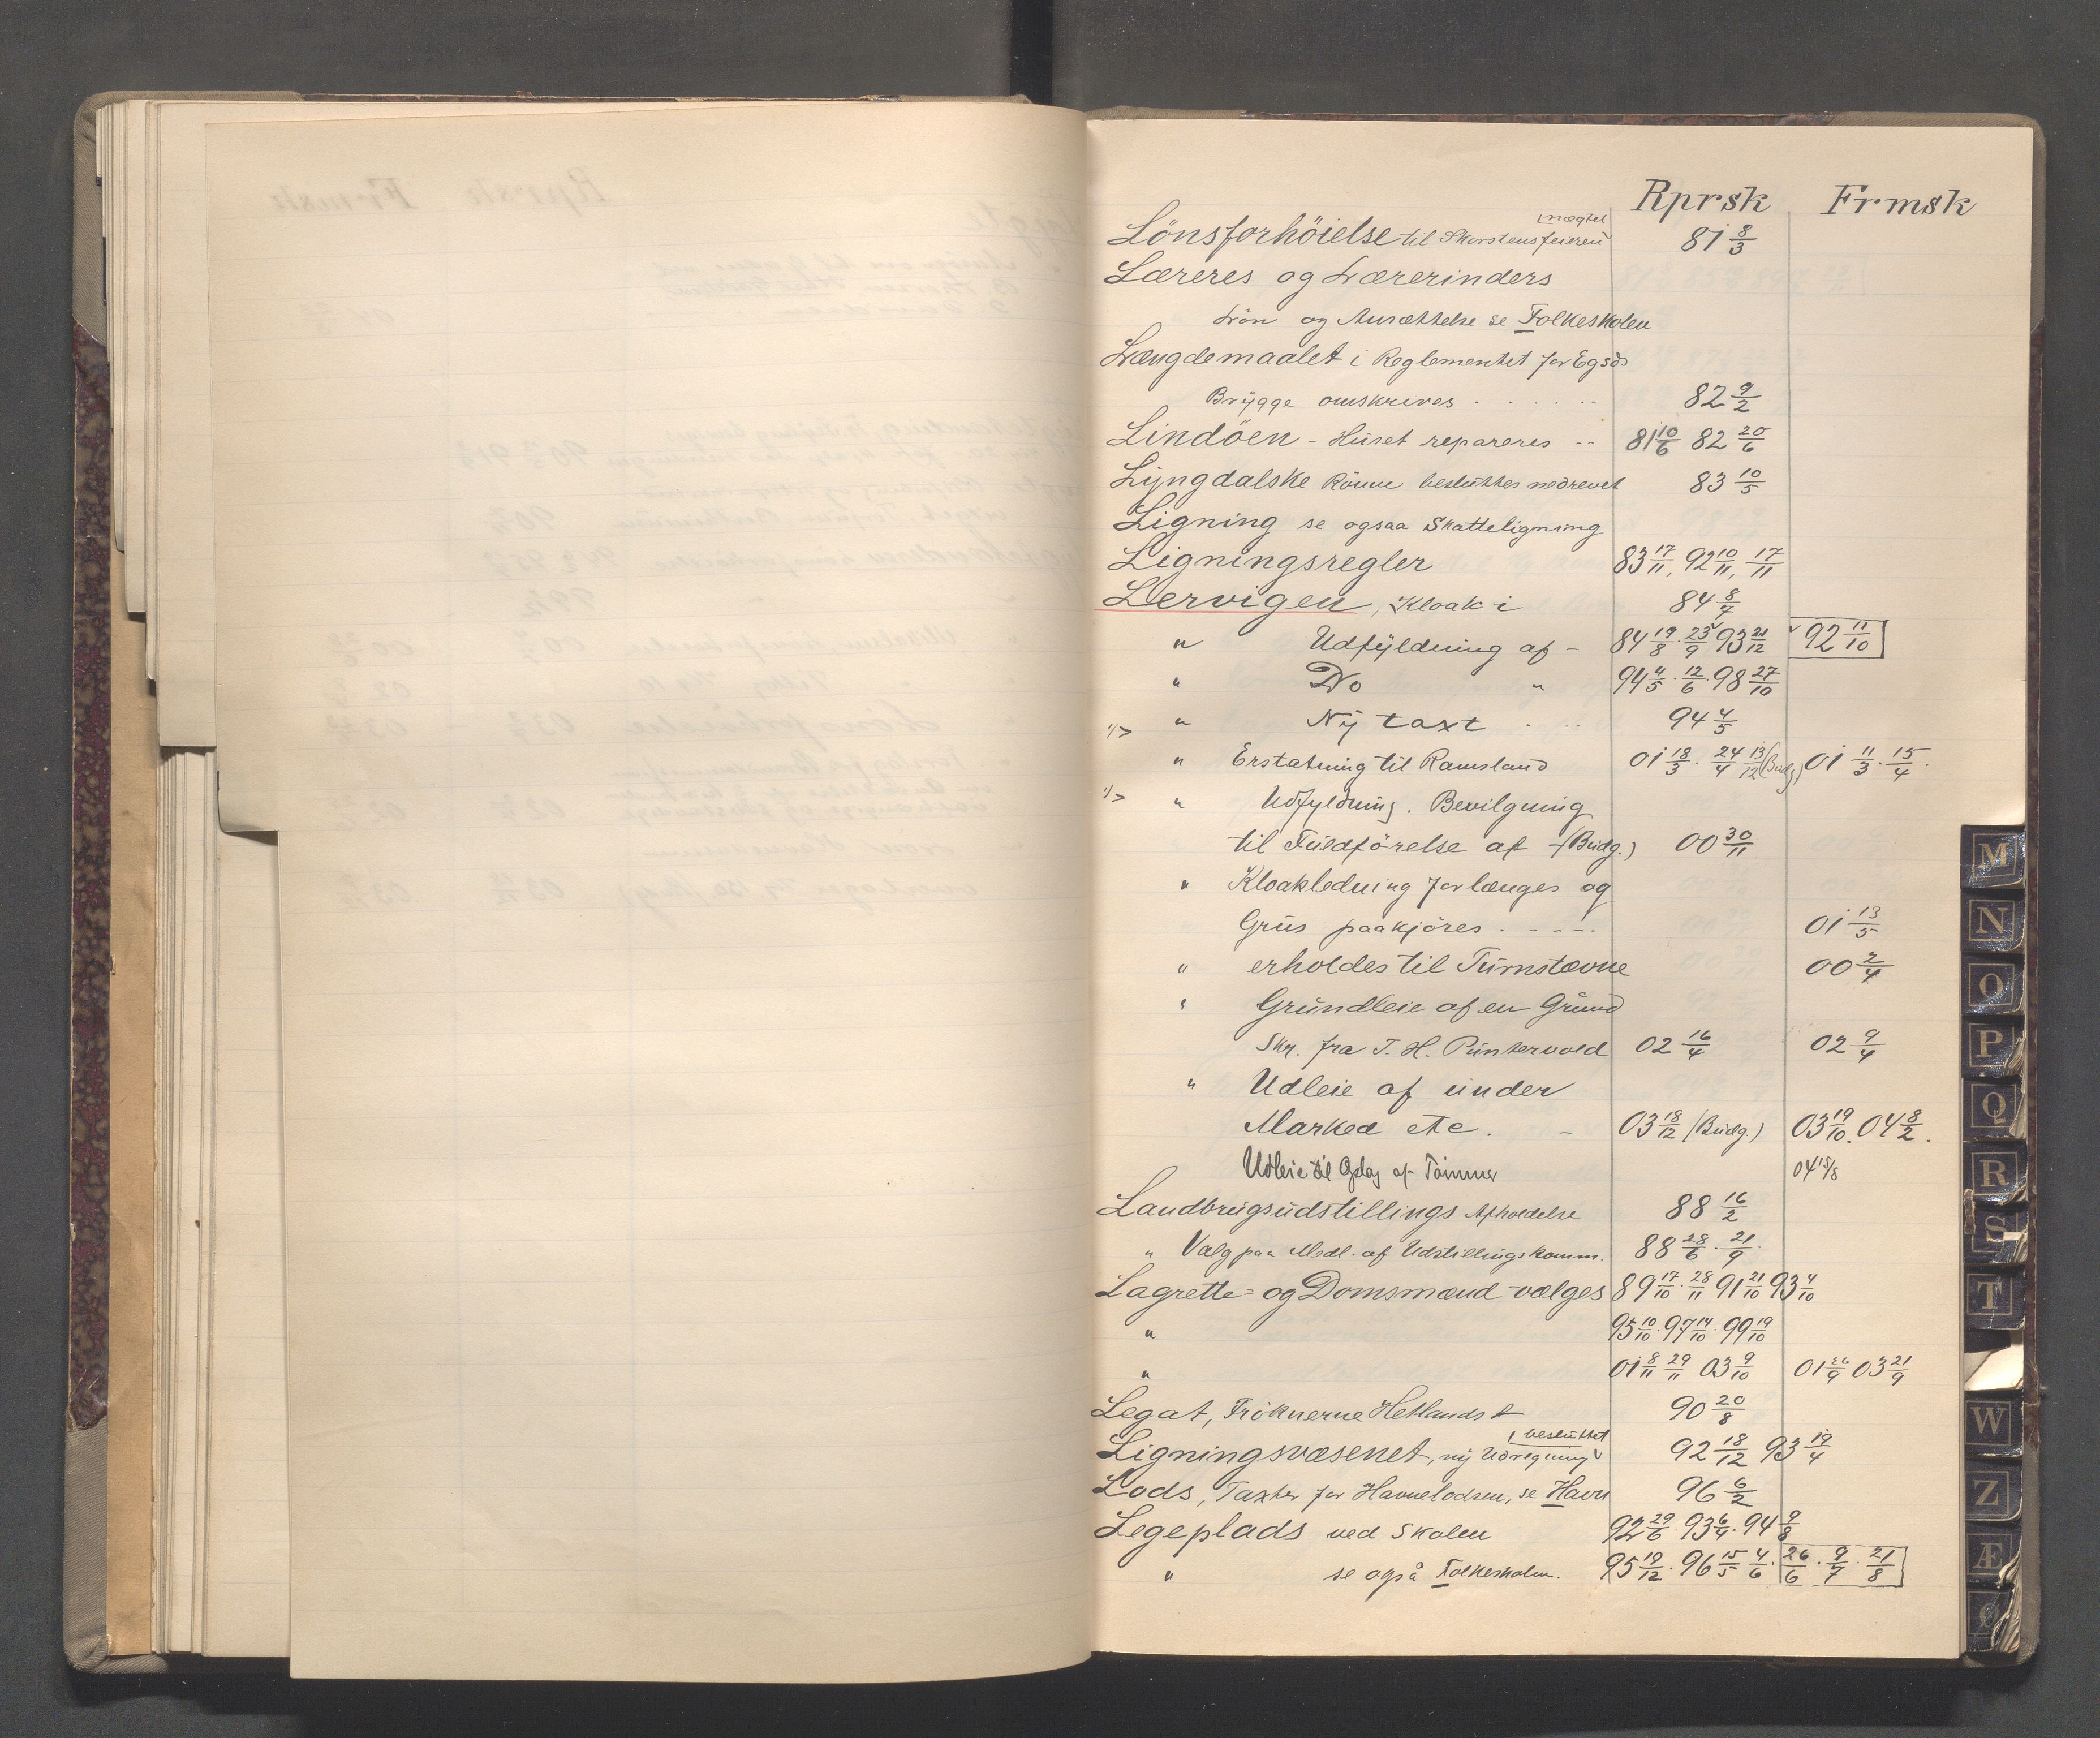 Rprsk Frmsk
nægtet
Lönsforhöielse til Skorstensfeieren 81 8/3
Læreres og Lærerinders
Lön og Ansættelse se Folkeskolen
Længdemaalet i Reglementet for Egsds
Brygge omskrives . . . . . 82 9/2
Lindöen - Huset repareres -- 81 10/6 82 20/6
Lyngdalske Rönne besluttes nedrevet 83 10/5
Ligning se ogsaa Skatteligning
Ligningsregler 83 17/11, 92 10/11, 17/11
Lervigen, Kloak i 84 8/7
" Udfyldning af - 84 19/8 . 23/9 93 21/12 92 11/10
" Do " 94 4/5 . 12/6 . 98 27/10
" Ny taxt . .. 94 4/5
" Erstatning til Ramsland 01 18/3 . 24/4 13/12 (Budg.) 01 11/3 . 15/4 .
" Udfyldning. Bevilgning
til Fuldförelse af - (Budg.) 00 30/11
" Kloakledning forlænges og
Grus paakjöres . - - - . 01 13/5
" erholdes til Turnstævne 00 2/4
" Grundleie af en Grund
Skr. fra T. H. Puntervold 02 16/4 02 9/4
" Udleie af under
Marked etc. - 03 18/12 (Budg.) 03 19/10. 04 8/2.
Udleie til Oplag af Tömmer 04 15/8
Landbrugsudstillings Afholdelse 88 16/2
" Valg paa Medl. af Udstillingskomm. 88 28/6 . 21/9 .
Lagrette= og Domsmænd - vælges 89 17/10 . 28/11 91 21/10 93 4/10
" 95 10/10 . 97 14/10 . 99 19/10
" 01 8/11 29/11 03 9/10 01 26/9 03 21/9
Legat, Fröknerne Hetlands 90 20/8
besluttet
Ligningsvæsenet, ny Udregning 92 18/12 93 19/4
Lods, Taxter for Havnelodsen, se Havn 96 6/2
Legeplads ved Skolen 92 29/6 . 93 6/4 . 94 9/8
" se også Folkeskolen. 95 19/12 . 96 15/5 4/6 . 26/6 . 9/7 . 21/8
M
N
O
P
Q
R
S
T
W
Z
Æ
Ø